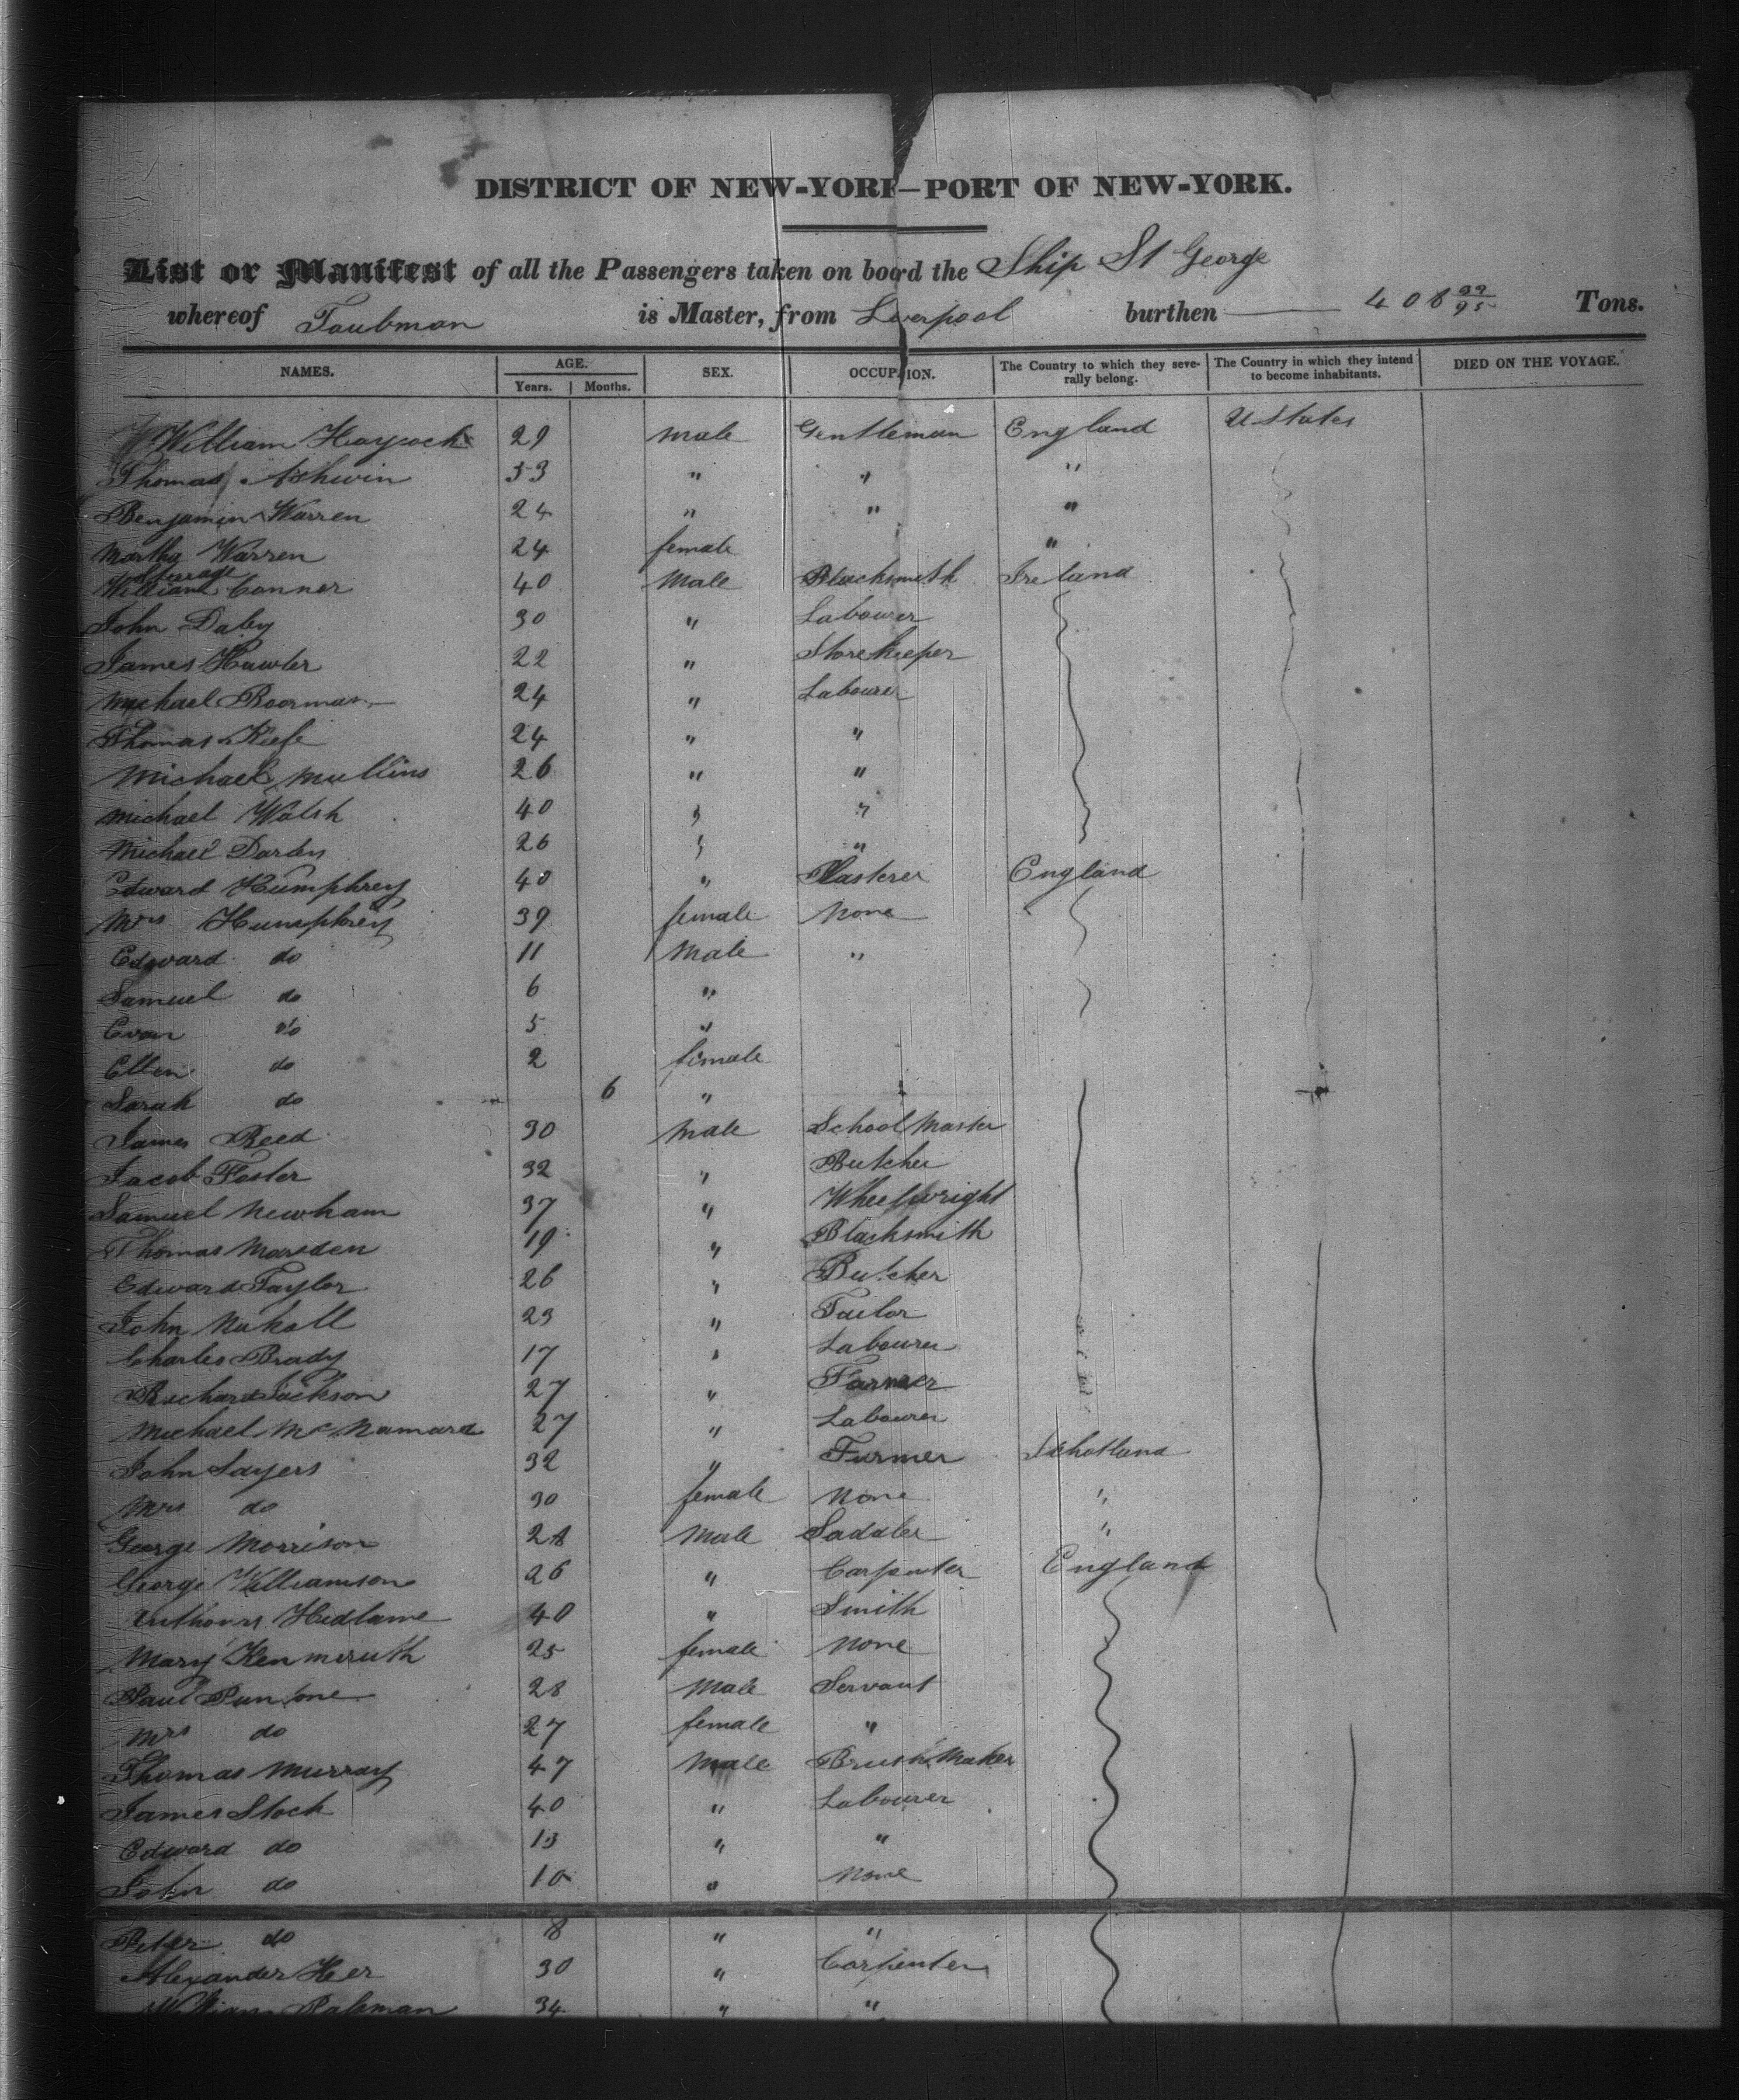 DISTRICT OF NEW-YORK—PORT OF NEW-YORK.
List or Manifest of all the Passengers taken on board the Ship St George
whereof Taubman is Master, from Liverpool burthen 408 Tons.
NAMES. AGE. SEX. OCCUPATION. The Country to which they seve- The Country in which they intend DIED ON THE VOYAGE.
Years. Months. rally belong. to become inhabitants.
William Haycock 29 male Gentleman England U States
Thomas Ashwin 33 " " "
Benjamin Warren 24 " " "
Martha Warren 24 female "
Steerage
William Connor 40 Male Blacksmith Ireland
John Daley 30 " Labourer
James Hawler 22 " Storekeeper
Michael 24 " Labourer
Thomas Kiefe 24 " "
Michael Mullins 26 " "
Michael Walsh 40 " "
Michael 26 " "
Edward Humphrey 40 " Plasterer England
Mrs Humphrey 39 female None
Edward do 11 Male "
Samuel do 6 "
Evan do 5 "
Ellen do 2 female
Sarah do 6 "
James Reed 30 Male School Master
Jacob Foster 32 " Butcher
Samuel Newham 37 " Wheelwright
Thomas Marsden 19 " Blacksmith
Edward Taylor 26 " Butcher
John Nuhall 23 " Tailor
Charles Brady 17 " Labourer
Richard Jackson 27 " Farmer
Michael McNamara 27 " Labourer
John Sayers 32 " Farmer Schotland
Mrs do 30 female None "
George Morrison 28 Male Saddler "
George Williamson 26 " Carpenter England
Hedlame 40 " Smith
Mary Kenmeruth 25 female None
Paul 28 Male Servant
Mrs do 27 female "
Thomas Murray 47 Male Brush Maker
James Stock 40 " Labourer
Edward do 13 " "
John do 10 " None
Peter do 8 " "
Alexander Her 30 " Carpenter
William 34 " "